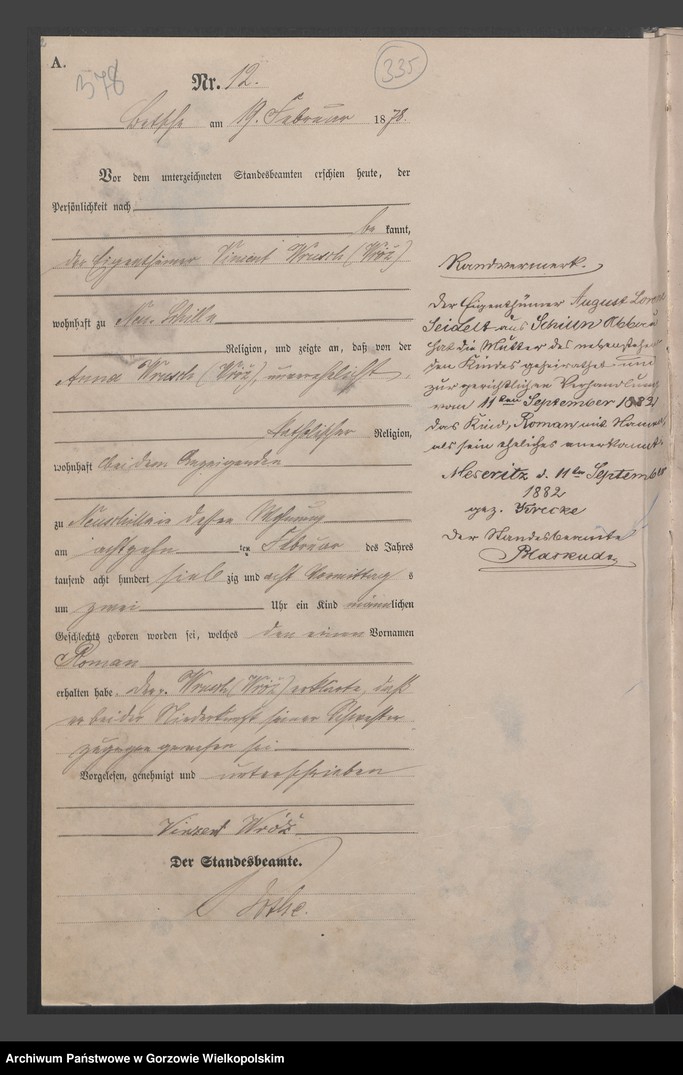 A.
578
335
Nr. 12.
Betsche am 19. Februar 1878.
Vor dem unterzeichneten Standesbeamten erschien heute, der
Persönlichkeit nach
be kannt,
der Eigenthümer Vincent Wrusch (Wróż)
wohnhaft zu Neu-Schilln
Religion, und zeigte an, daß von der
Anna Wrusch (Wróż), unverehelicht
katholischer Religion,
wohnhaft bei dem Anzeigenden
zu Neuschilln in dessen Wohnung
am achtzehn ten Februar des Jahres
tausend acht hundert sieb zig und acht Vormittag s
um zwei Uhr ein Kind männlichen
Geschlechts geboren worden sei, welches den einen Vornamen
Roman
erhalten habe. Der p. Wrusch (Wróż) erklärte, daß
er bei der Niederkunft seiner Schwester
zugegen gewesen sei.
Vorgelesen, genehmigt und unterschrieben
Vinzent Wróż
Der Standesbeamte.
Randvermerk.
Der Eigenthümer August
Seidelt aus Schilln Abbau
hat die Mutter des nebenstehen
den Kindes geheirathet und
zur gerichtlichen Verhandlung
vom 11ten September 1882
das Kind, Roman mit Namen,
als sein eheliches anerkannt.
Meseritz d. 11ten September
1882
gez.
Der Standesbeamte
Archiwum Państwowe w Gorzowie Wielkopolskim